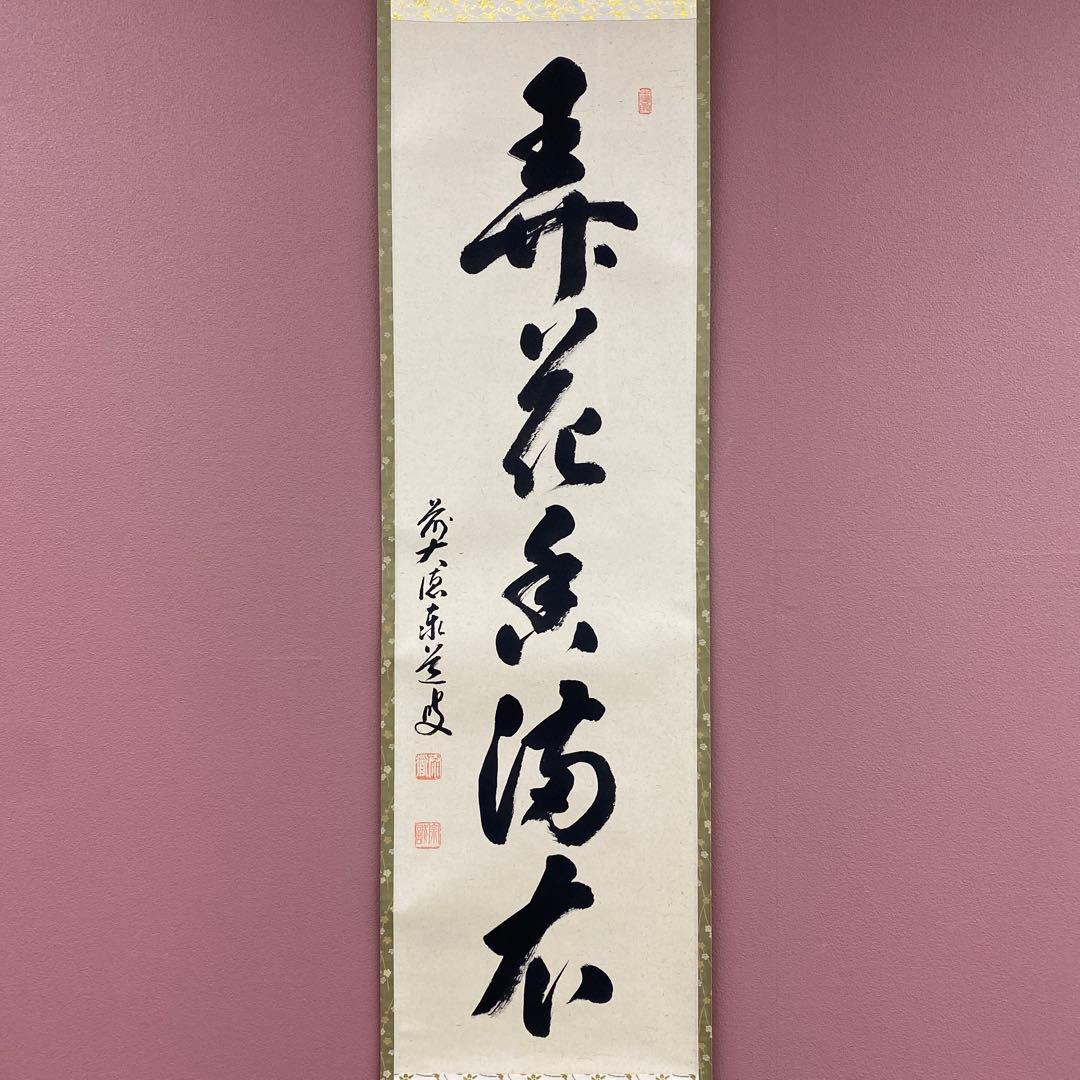 弄花香満衣
前大徳泰道叟